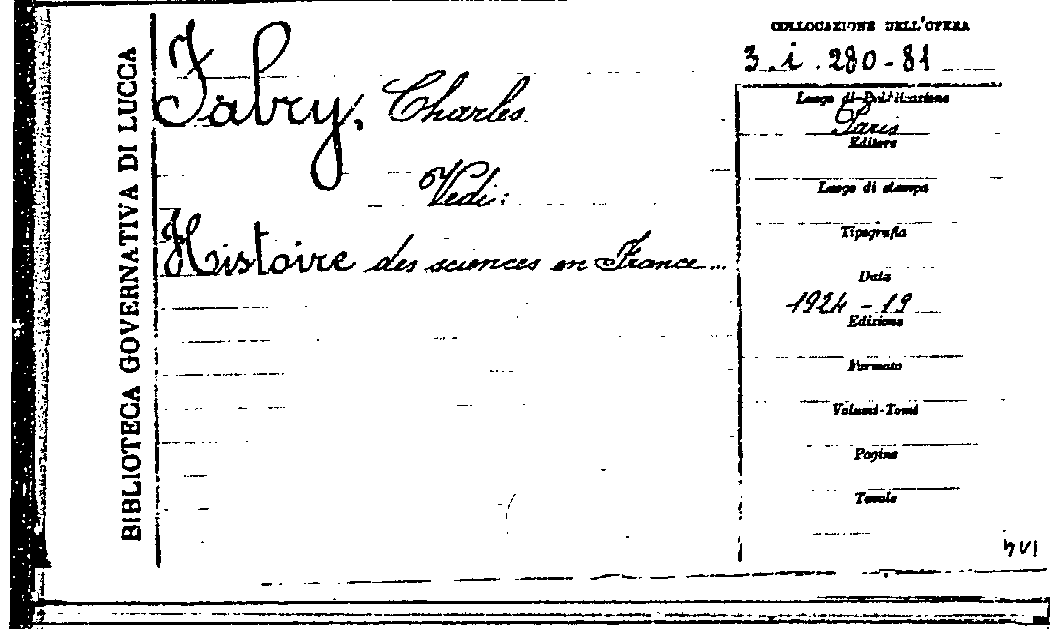 BIBLIOTECA GOVERNATIVA DI LUCCA
Fabry, Charles
Vedi:
Histoire des sciences en France...
COLLOCAZIONE DELL'OPERA
3.i.280-81
Luogo di Pubblicazione
Paris
Editore
Luogo di stampa
Tipografia
Data
1924-19
Edizione
Formato
Volumi-Tomi
Pagine
Tavole